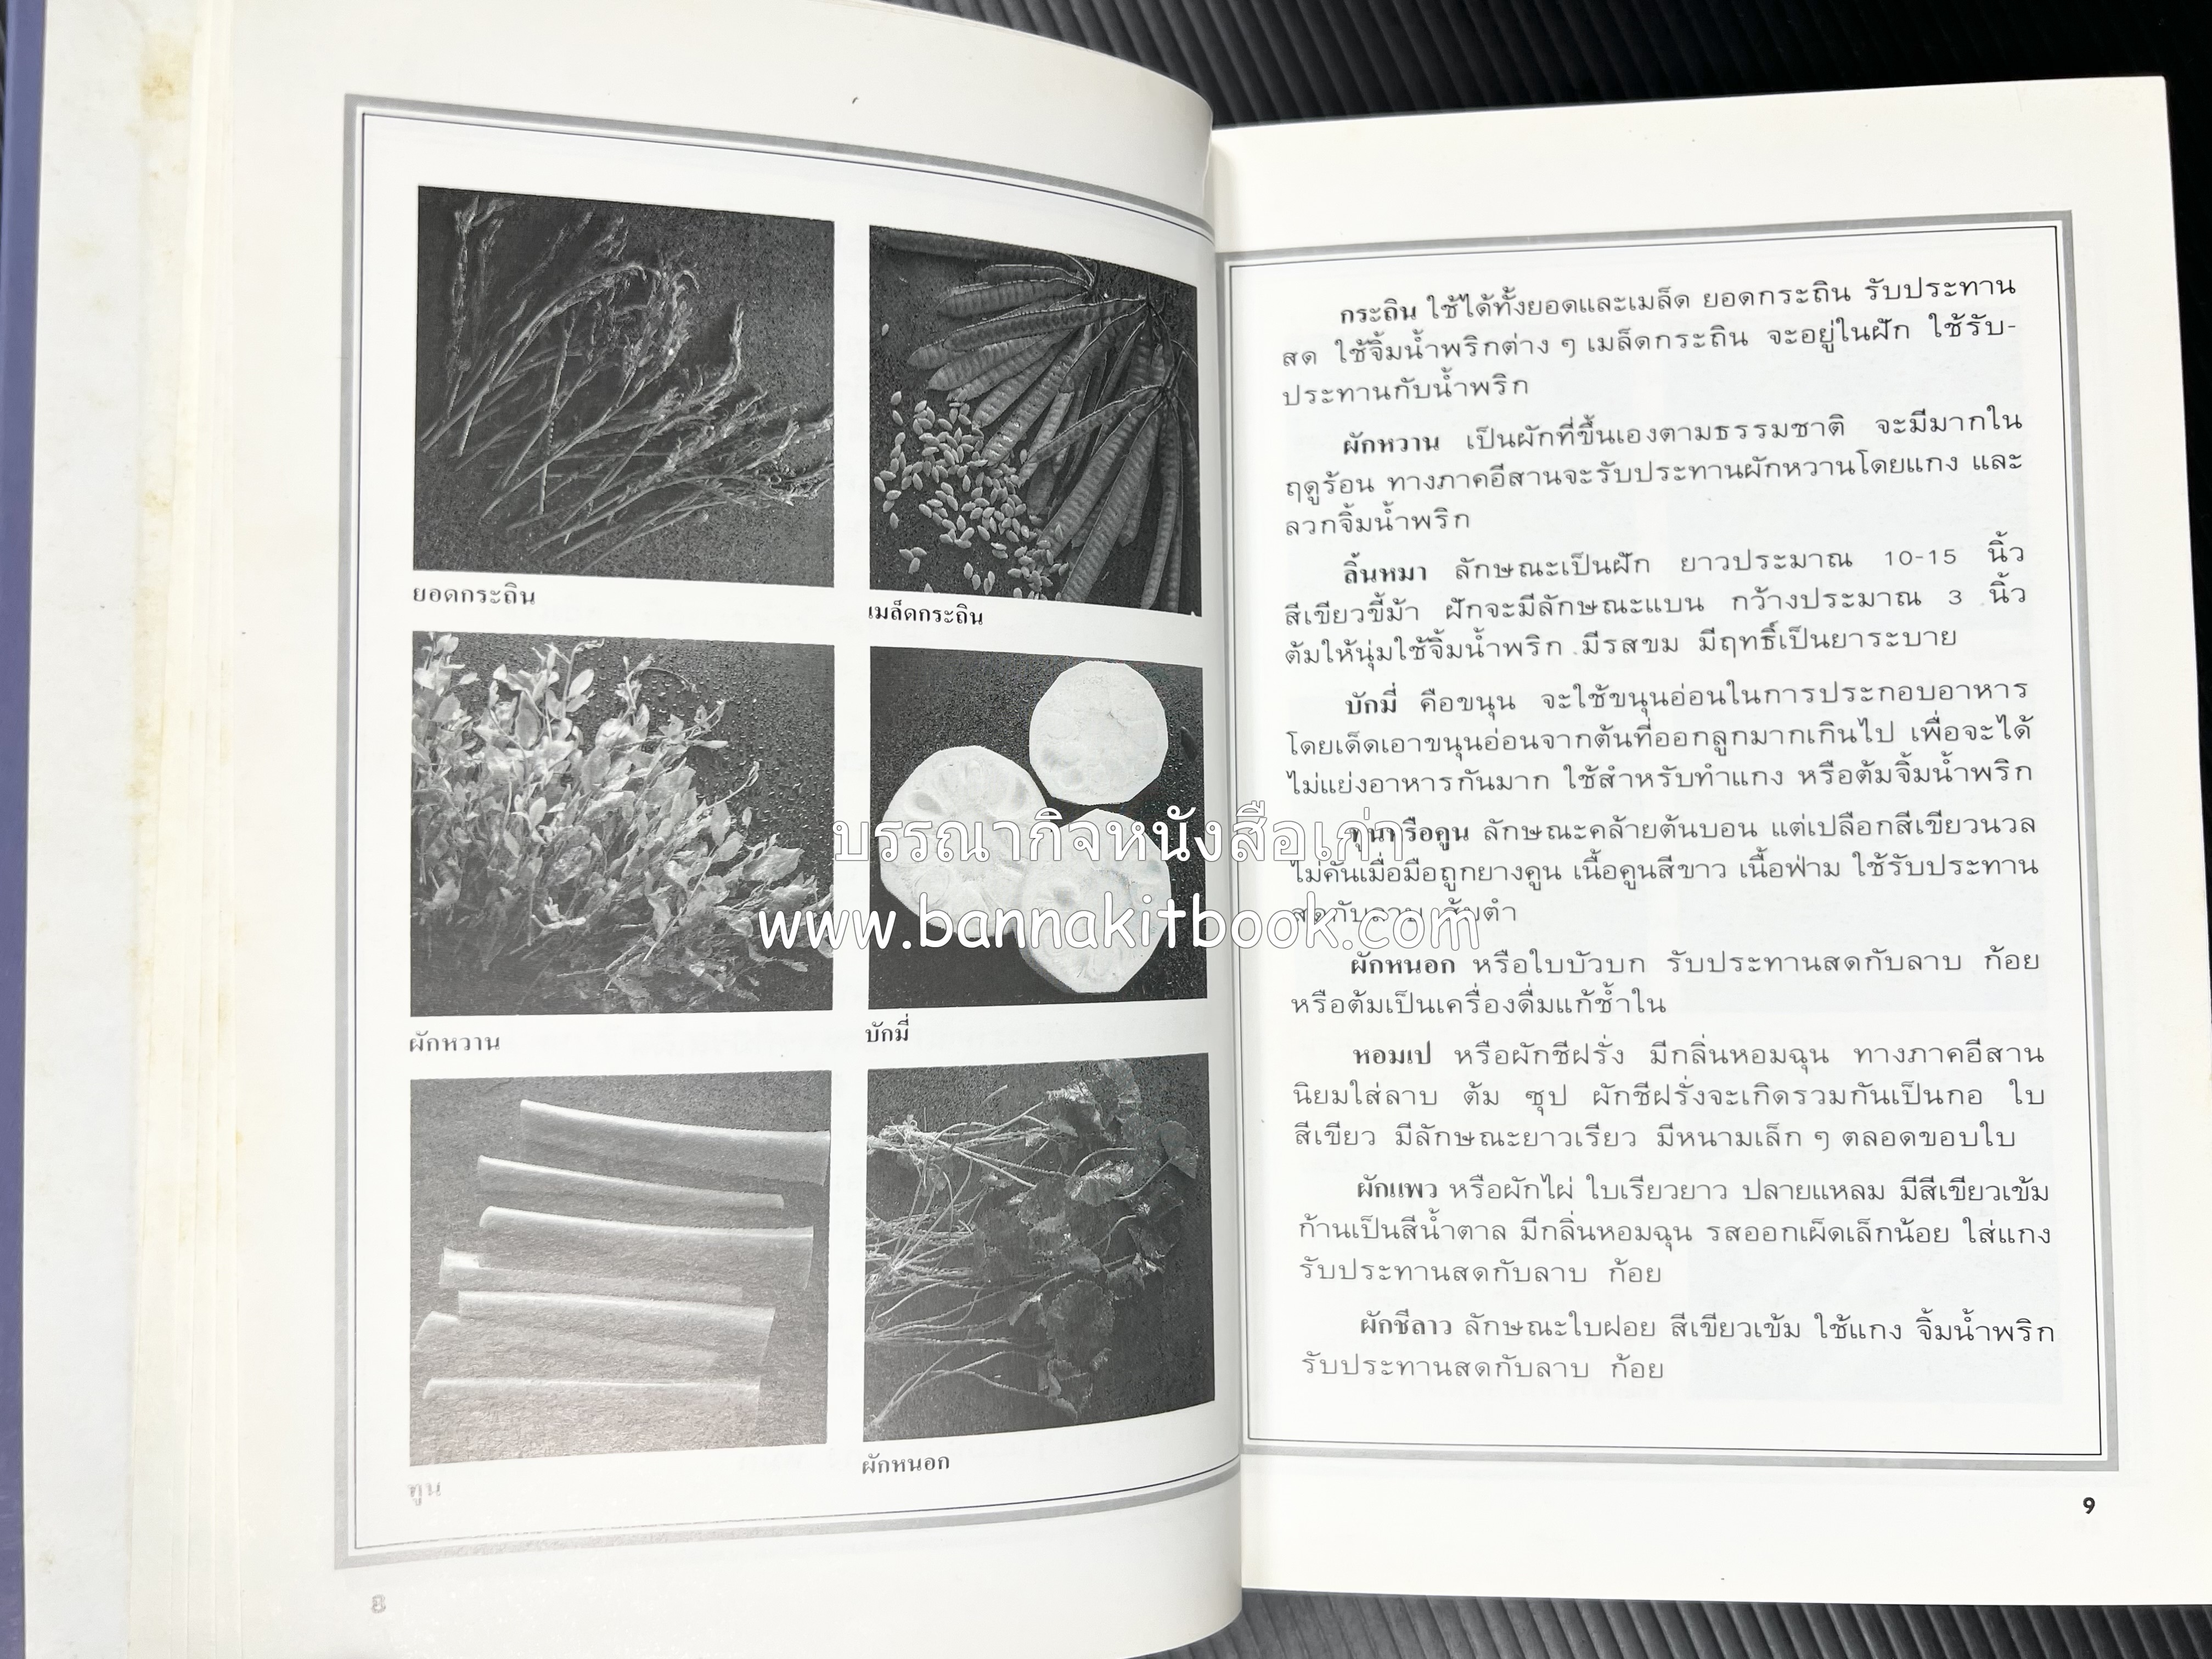 ยอดกระถิน
เมล็ดกระถิน
ผักหวาน
บักมี่
ทูน
ผักหนอก
8
กระถิน ใช้ได้ทั้งยอดและเมล็ด ยอดกระถิน รับประทาน
สด ใช้จิ้มน้ำพริกต่าง ๆ เมล็ดกระถิน จะอยู่ในฝัก ใช้รับ-
ประทานกับน้ำพริก
ผักหวาน เป็นผักที่ขึ้นเองตามธรรมชาติ จะมีมากใน
ฤดูร้อน ทางภาคอีสานจะรับประทานผักหวานโดยแกง และ
ลวกจิ้มน้ำพริก
ลิ้นหมา ลักษณะเป็นฝัก ยาวประมาณ 10-15 นิ้ว
สีเขียวขี้ม้า ฝักจะมีลักษณะแบน กว้างประมาณ 3 นิ้ว
ต้มให้นุ่มใช้จิ้มน้ำพริก มีรสขม มีฤทธิ์เป็นยาระบาย
บักมี่ คือขนุน จะใช้ขนุนอ่อนในการประกอบอาหาร
โดยเด็ดเอาขนุนอ่อนจากต้นที่ออกลูกมากเกินไป เพื่อจะได้
ไม่แย่งอาหารกันมาก ใช้สำหรับทำแกง หรือต้มจิ้มน้ำพริก
ทูนหรือคูน ลักษณะคล้ายต้นบอน แต่เปลือกสีเขียวนวล
ไม่คันเมื่อมือถูกยางคูน เนื้อคูนสีขาว เนื้อฟ่าม ใช้รับประทาน
สดกับลาบ ส้มตำ
ผักหนอก หรือใบบัวบก รับประทานสดกับลาบ ก้อย
หรือต้มเป็นเครื่องดื่มแก้ช้ำใน
หอมเป หรือผักชีฝรั่ง มีกลิ่นหอมฉุน ทางภาคอีสาน
นิยมใส่ลาบ ต้ม ซุป ผักชีฝรั่งจะเกิดรวมกันเป็นกอ ใบ
สีเขียว มีลักษณะยาวเรียว มีหนามเล็ก ๆ ตลอดขอบใบ
ผักแพว หรือผักไผ่ ใบเรียวยาว ปลายแหลม มีสีเขียวเข้ม
ก้านเป็นสีน้ำตาล มีกลิ่นหอมฉุน รสออกเผ็ดเล็กน้อย ใส่แกง
รับประทานสดกับลาบ ก้อย
ผักชีลาว ลักษณะใบฝอย สีเขียวเข้ม ใช้แกง จิ้มน้ำพริก
รับประทานสดกับลาบ ก้อย
9
บรรณากิจหนังสือเก่า
www.bannakitbook.com